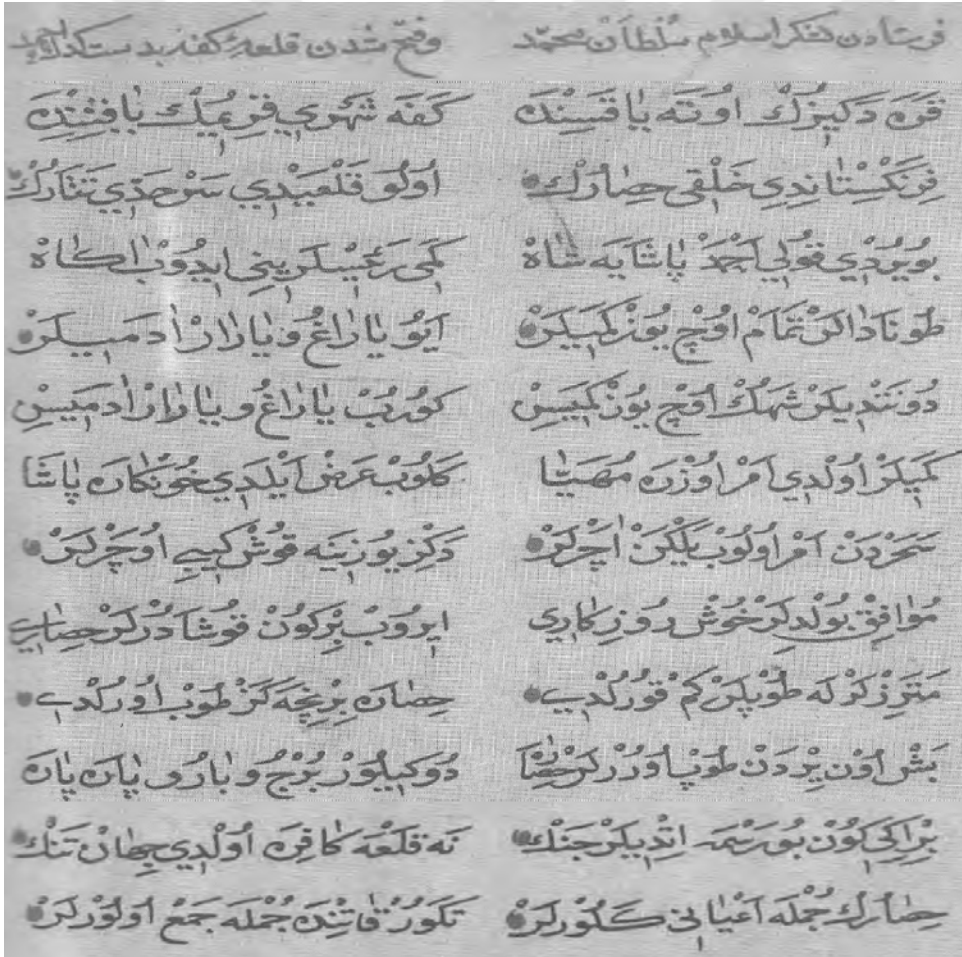 فرستادن لشكر اسلام سلطان محمد وفتح شدن قلعهٔ كفه بدست كدك احمد
قَرَه دَكِيزُكْ اوُتَه يٰاقَسِنْدَه كَفَه شَهْرِي قِرِمُكْ يٰاقِنِنْدَه
فِرَنْكِسْتٰانِدِي خَلْقِي حِصٰارُكْ اوُلُو قَلْعَيِيدِي سَرْحَدِّي تَتٰارُكْ
بُويُرْدِي قوُلِي اَحْمَدْ پٰاشَايَه شَاهْ كَمِي رَئِيسْلَرِينِي ايدُوبْ اٰكَاهْ
طوُنَادَالَرْ تَمَامْ اوُچْ يوُزْ كَمِيلَرْ اَيوُ يٰارٰاغْ وُ يٰارٰارْ اٰدَمِيلَرْ
دوُنَتْدِيلَرْ شَهُكْ اوُچْ يوُزْ كَمِيسِنْ كوُرُبْ يٰارٰاغْ و يٰارٰارْ اٰدَمِيسِنْ
كَمِيلَرْ اوُلْدِي اَمْر اوُزْرَه مُهَيّٰا كَلوُبْ عَرْض اَيْلَدِي خوُنْكَارَه پٰاشَا
سَحَرْدَنْ اَمْر اوُلُوبْ يَلْكَنْ اَچَرْلَرْ دَكِزْ يوُزِينَه قوُشْ كِيبِي اوُچَرْلَرْ
مُوٰافِقْ بوُلْدِلَرْ خوُشْ روُزِكَارِي ايروُبْ بِرْكوُنْ قوُشَادُرْلَرْ حِصٰارِي
مَتَرِزْلَرْلَه طوُپْلَرْ كَمْ قوُرُلْدِي حِصَارَه بِرْنِچَه كَزْ طوُبْ اوُرُلْدِي
بَشْ اوُنْ يِرْدَنْ طوُپْ اوُرُرْلَرْ حِصَارَا دوُكِيلوُرْ بُرْجْ و بٰارُو پٰارَه پٰارَه
بِرْ اِكِي كوُنْ بوُ رَسْمَه اِتْدِيلَرْ جَنْكْ نَه قَلْعَه كَافِرَه اوُلْدِي جِهَانْ تَنْكْ
حِصَارُكْ جُمْلَه اَعْيَانِي كَلوُرْلَرْ تَكوُرْ قٰاتِنْدَه جُمْلَه جَمْعْ اوُلوُرْلَرْ